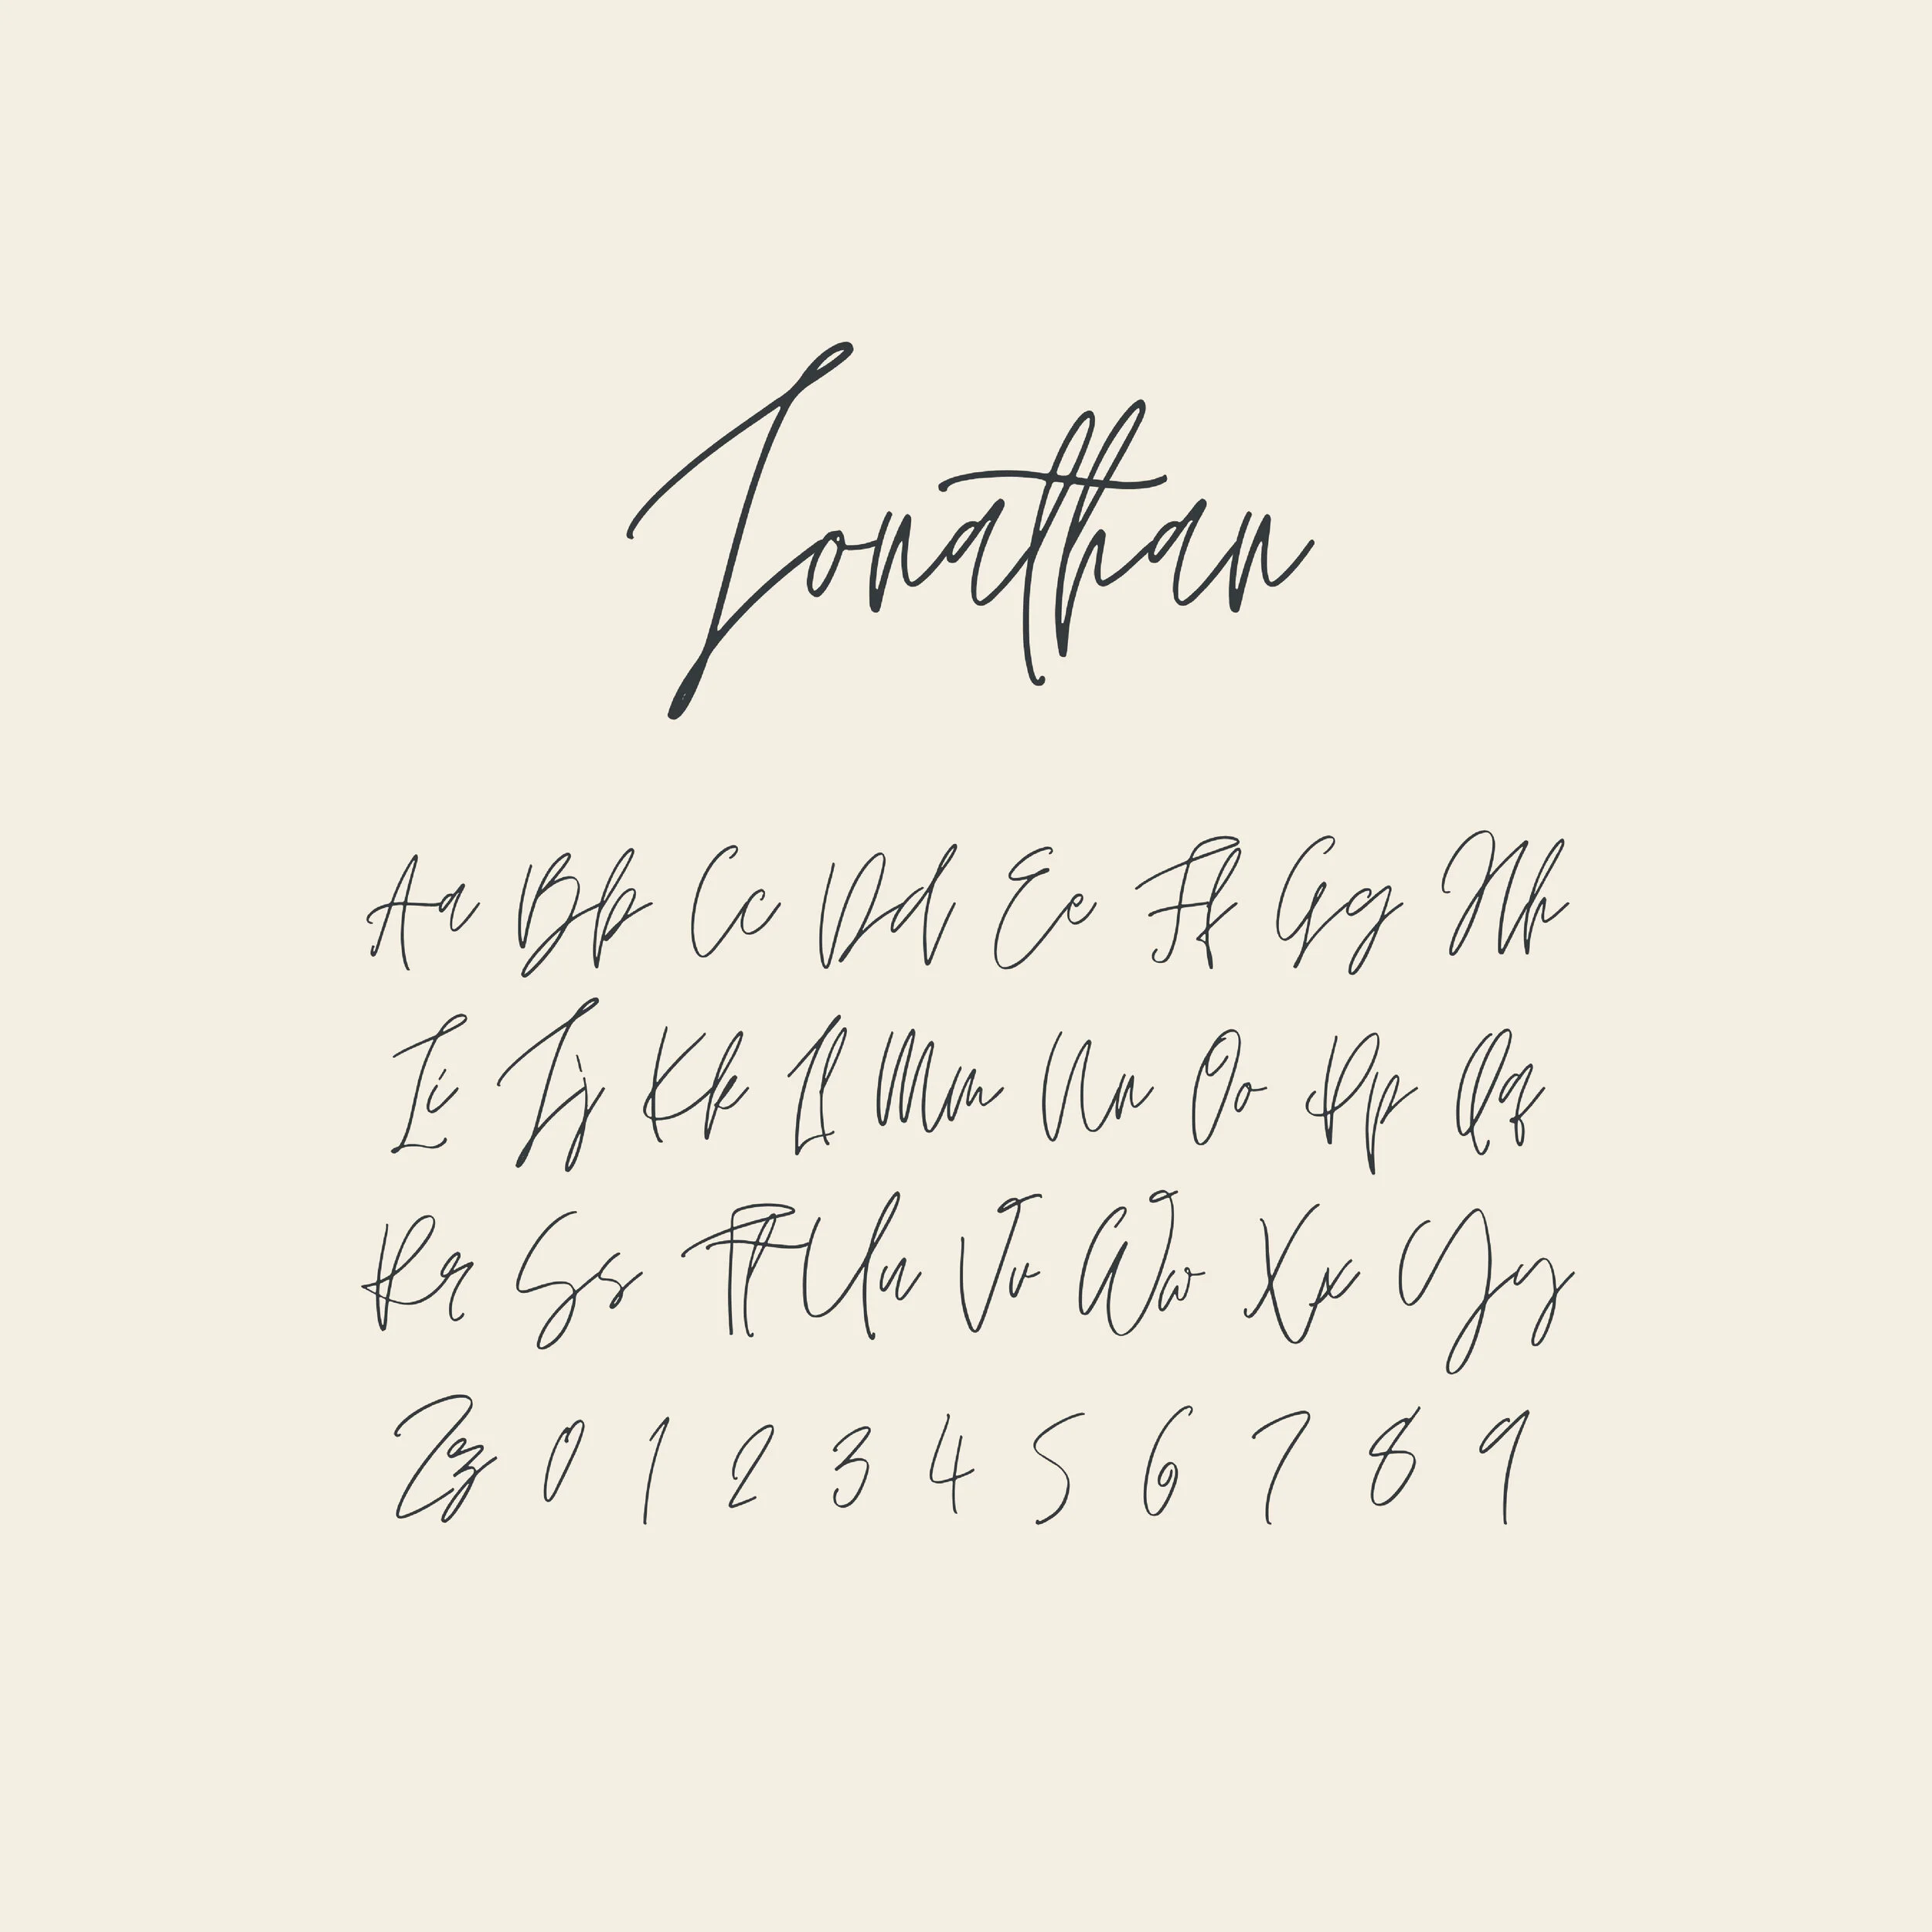 Jonathan
Aa Bb Cc Dd Ee Ff Gg Hh
Ii Jj Kk Ll Mm Nn Oo Pp Qq
Rr Ss Tt Uu Vv Ww Xx Yy
Zz 0 1 2 3 4 5 6 7 8 9